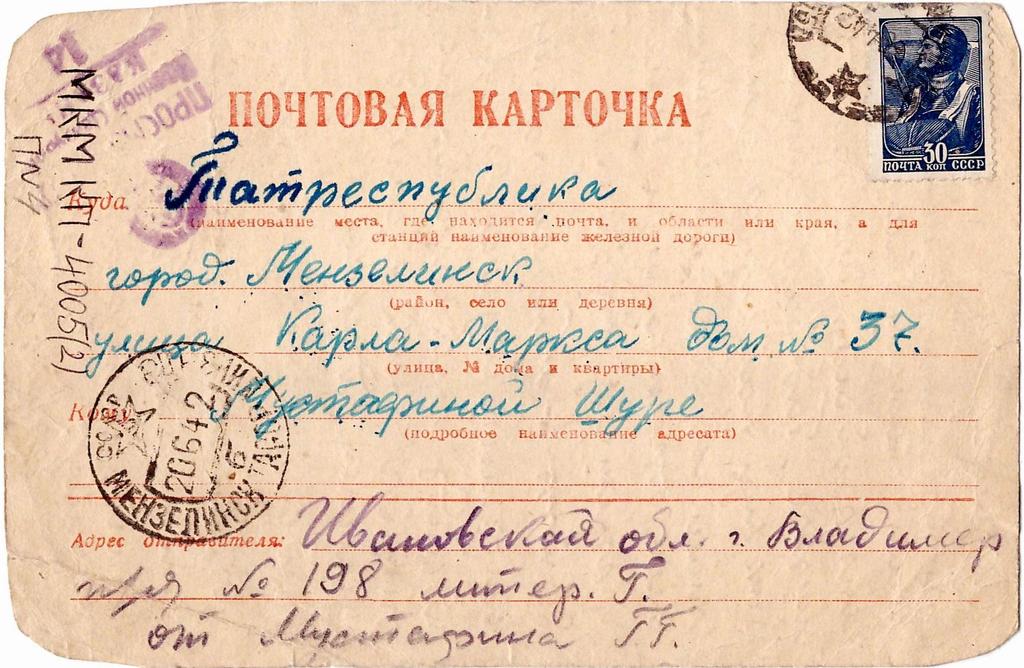 ПОЧТОВАЯ КАРТОЧКА
30
ПОЧТА КОП СССР
МКМ КП-4005(2)
ПМ4
Куда Татреспублика
(наименование места, где находится почта, и области или края, а для
станций наименование железной дороги)
город. Мензелинск
(район, село или деревня)
улица Карла-Маркса дом № 37.
(улица, № дома и квартиры)
Кому Мустафиной Шуре
(подробное наименование адресата)
20 6 42
МЕНЗЕЛИНСК ТАС
Адрес отправителя: Ивановская обл. г. Владимер
№ 198 литер. Г.
от Мустафина Г.Г.